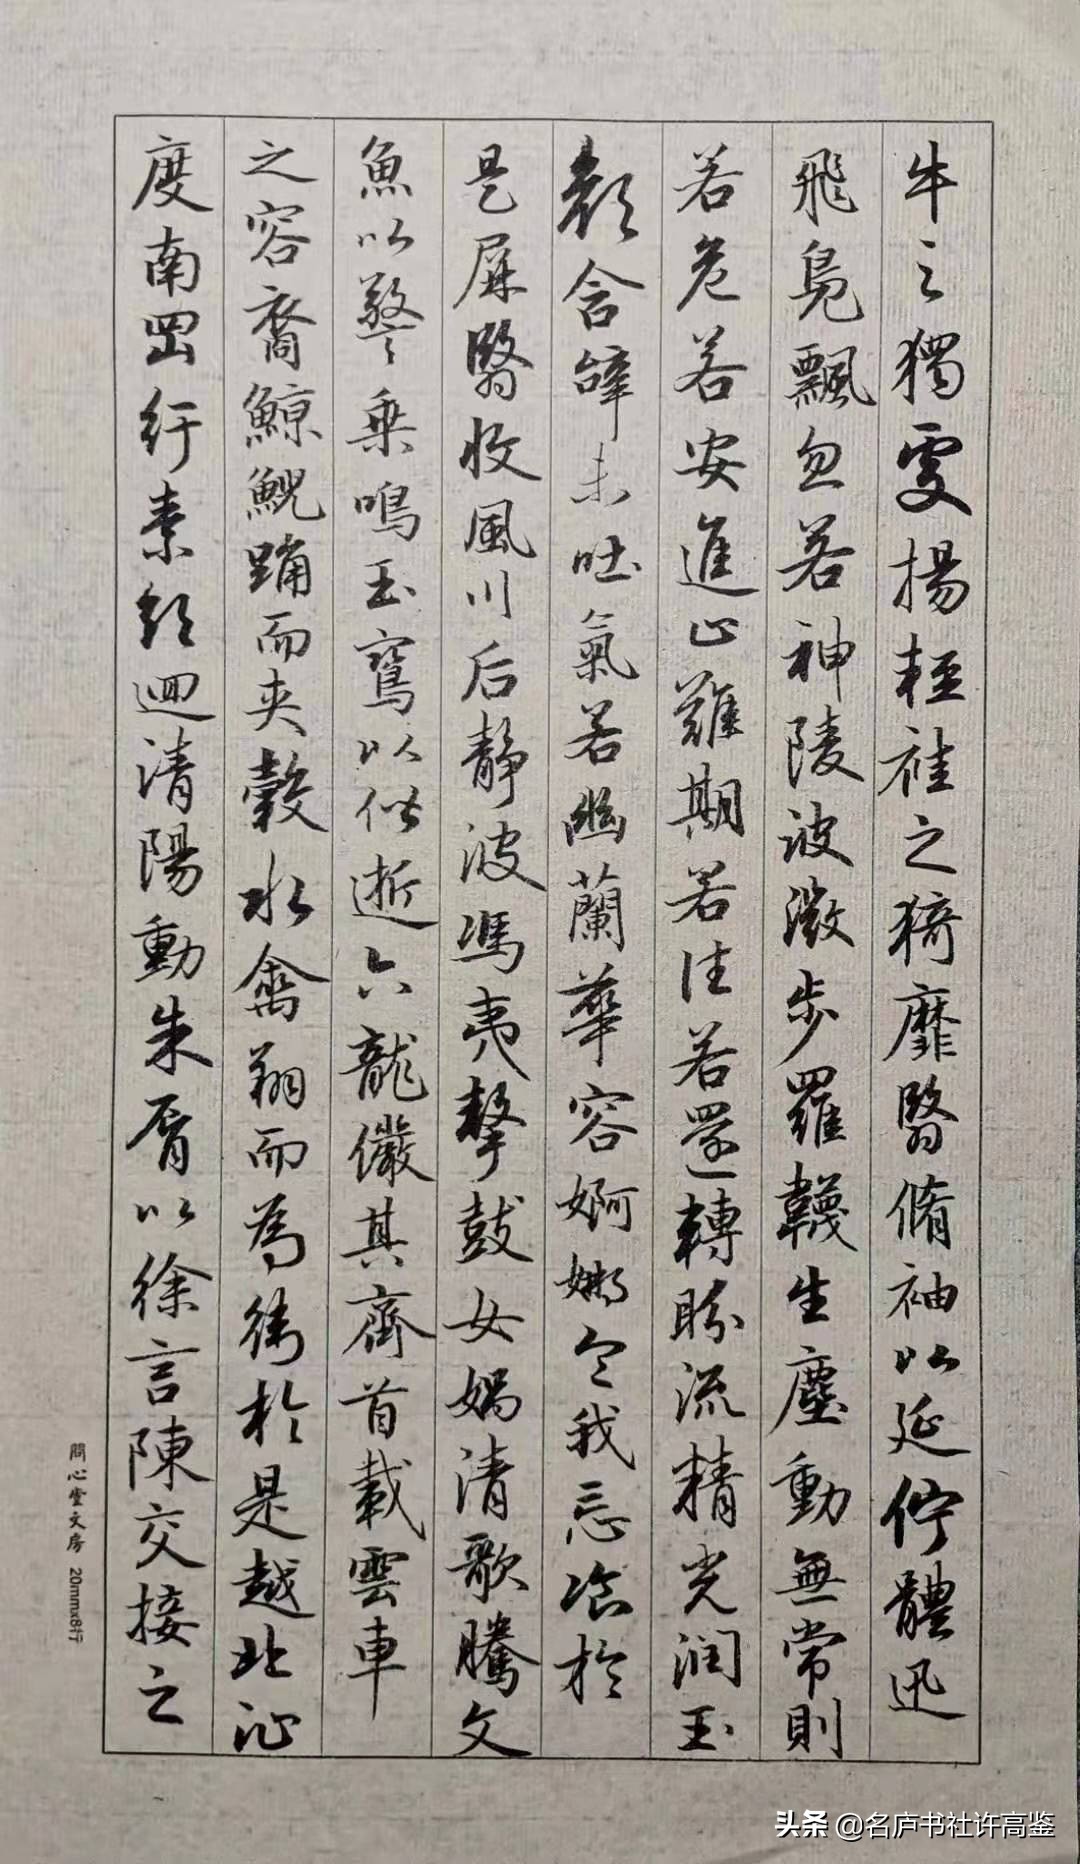 牛之獨處揚輕袿之猗靡翳脩袖以延佇體迅
飛鳧飄忽若神陵波微步羅韈生塵動無常則
若危若安進止難期若往若還轉盼流精光润玉
顏含辭未吐氣若幽蘭華容婀娜令我忘飡於
是屏翳收風川后静波馮夷擊鼓女媧清歌騰文
魚以警乗鳴玉鸞以偕逝六龍儼其齊首載雲車
之容裔鯨鯢踊而夹轂水禽翔而為衛於是越北沚
度南岡紆素領迴清陽動朱脣以徐言陳交接之
問心堂文房 20mmx8行
头条 @名庐书社许高鉴